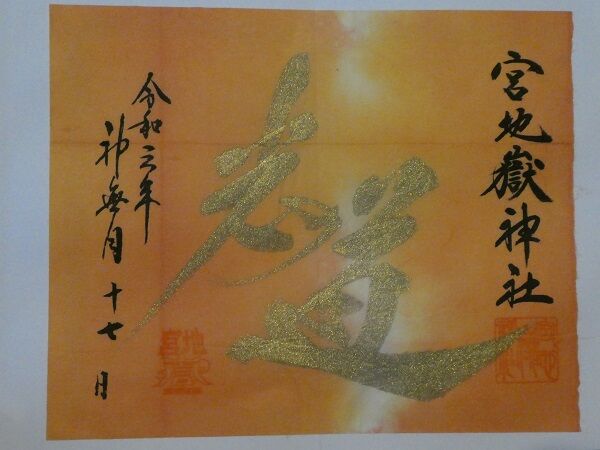 宮地嶽神社
光の道
令和三年
神無月十七日
宮地嶽